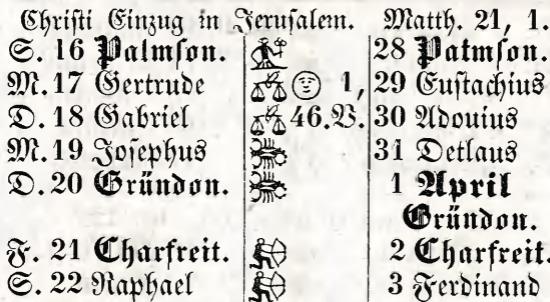 Chriſti Einzug in Jeruſalem. Matth. 21, 1.
S. 16 Palmſon. 28 Palmſon.
M. 17 Gertrude 1, 29 Euſtachius
D. 18 Gabriel 46.V. 30 Adouius
M. 19 Joſephus 31 Detlaus
D. 20 Gründon. 1 April
Gründon.
F. 21 Charfreit. 2 Charfreit.
S. 22 Raphael 3 Ferdinand